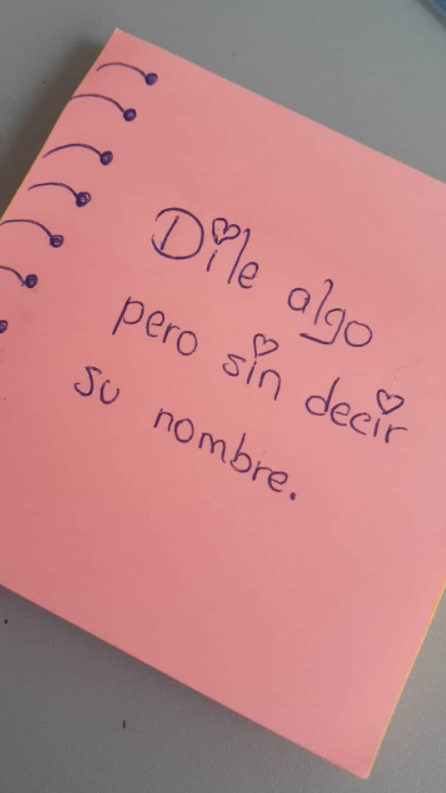 Dile algo
pero sin decir
su nombre.